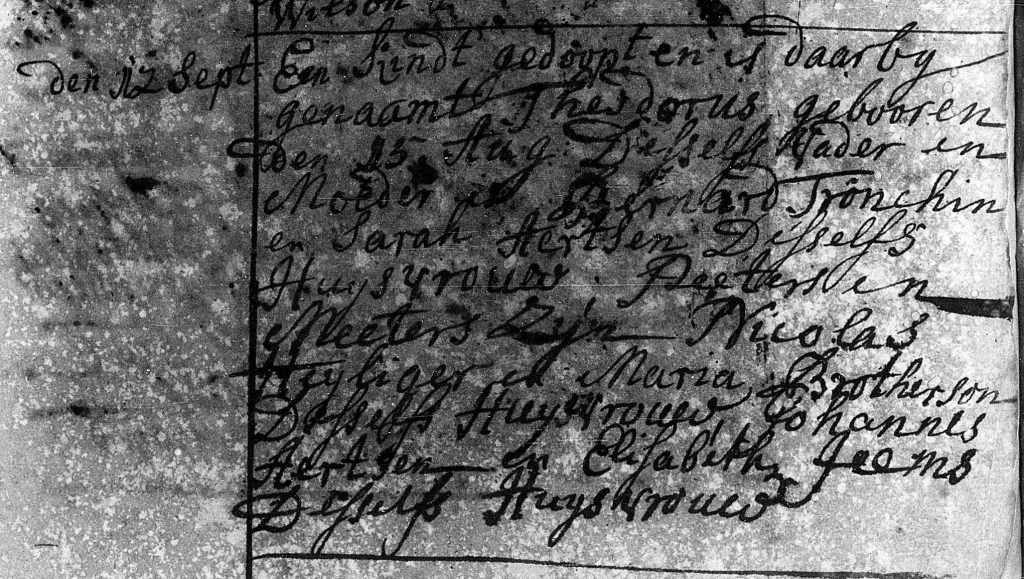 Witson
den 12 Sept. Een Kindt gedoopt en is daarby
genaamt Thesdorus gebooren
den 15 Aug. Desselfs Vader en
Moeder is Bernard Tronchin
en Sarah Aertsen Desselfs
Huysvrouw. Peeters en
Meeters Zyn Nicolas
Heyliger en Maria Brotherson
Desselfs Huysvrouw, Johannes
Aertsen en Elisabeth Jeems
Desselfs Huysvrouw